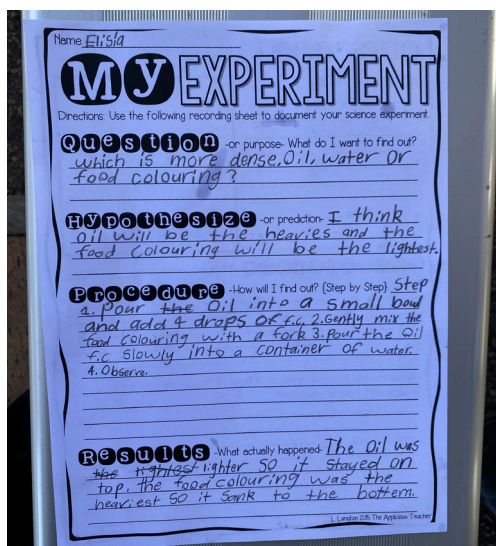 Name Elisia
My EXPERIMENT
Directions: Use the following recording sheet to document your science experiment.
Question -or purpose- What do I want to find out?
which is more dense, Oil, water or
food colouring?
Hypothesize -or prediction- I think
oil will be the heavies and the
food colouring will be the lightest.
Procedure -How will I find out? (Step by Step) Step
1. Pour the Oil into a small bowl
and add 4 drops of f.c. 2. Gently mix the
food colouring with a fork 3. Pour the Oil
f.c slowly into a container of water.
4. Observe.
Results -What actually happened- The Oil was
the lightest lighter so it stayed on
top, the food colouring was the
heaviest so it sank to the bottem.
L. Langton 2015 The Applicious Teacher